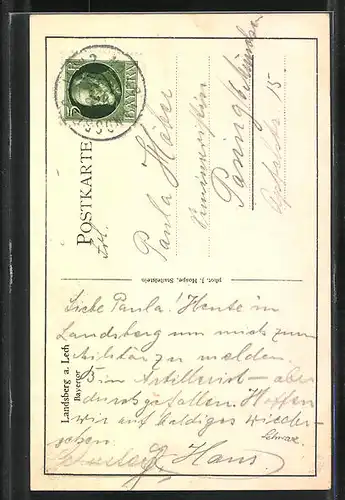 POSTKARTE
BAYERN
5
Frl.
Paula Huber
Seminaristin
Pasing b/München
15.
phot. J. Hospe, Staffelstein
Landsberg a. Lech
Bayertor
Liebe Paula! Heute in
Landsberg um mich zum
Militär zu melden.
Bin Artillerist – aber
durchgefallen. Hoffen
wir auf baldiges wieder-
sehen.
Hans.